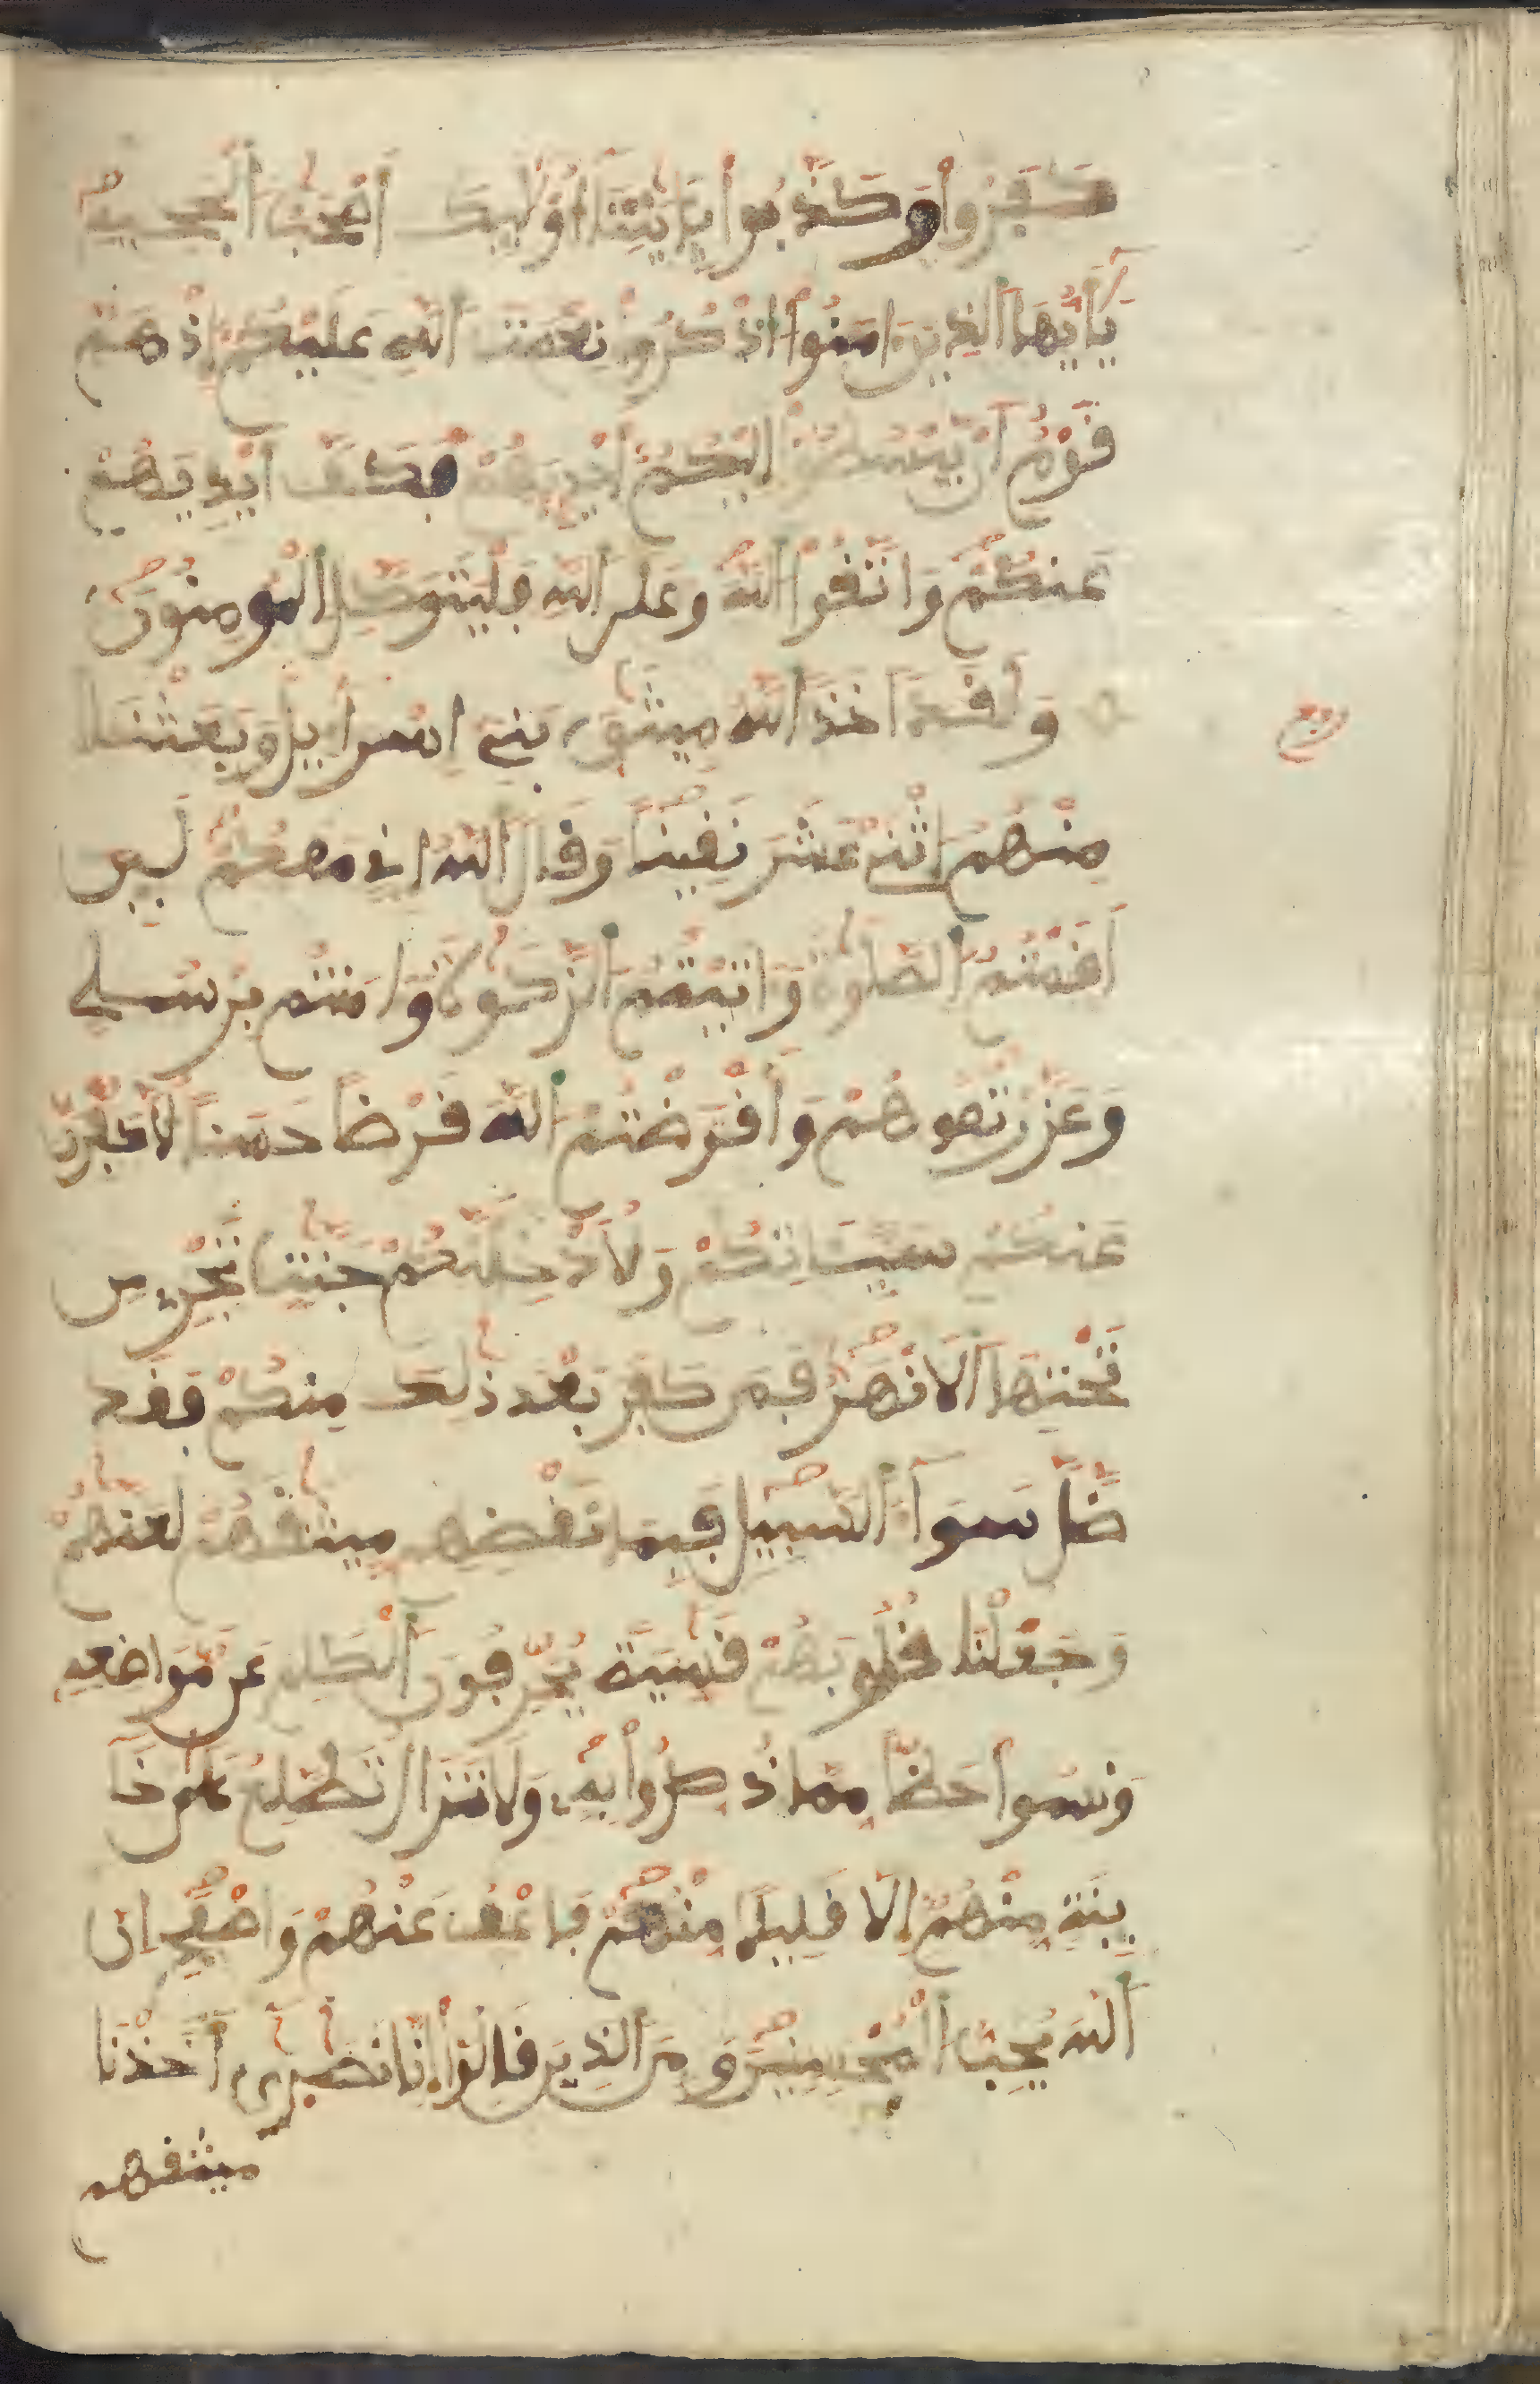 كَفَرُوا وَكَذَّبُوا بِـَٔايَٰتِنَا أُوْلَٰٓئِكَ أَصْحَٰبُ الْجَحِيمِ
يَٰٓأَيُّهَا الذِينَ ءَامَنُوا اذْكُرُوا نِعْمَتَ اللَّهِ عَلَيْكُمْ إِذْ هَمَّ
قَوْمٌ أَنْ يَّبْسُطُوا إِلَيْكُمْ أَيْدِيَهُمْ فَكَفَّ أَيْدِيَهُمْ
عَنكُمْ وَاتَّقُوا اللَّهَ وَعَلَى اللَّهِ فَلْيَتَوَكَّلِ الْمُومِنُونَ
وَلَقَدَ اَخَذَ اللَّهُ مِيثَٰقَ بَنِے إِسْرَآءِيلَ وَبَعَثْنَا
ربع
مِنْهُمُ اثْنَےْ عَشَرَ نَقِيبًا وَقَالَ اللَّهُ إِنِّے مَعَكُمْ لَئِنَ
اَقَمْتُمُ الصَّلَوٰةَ وَءَاتَيْتُمُ الزَّكَوٰةَ وَءَامَنتُم بِرُسُلِے
وَعَزَّرْتُمُوهُمْ وَأَقْرَضْتُمُ اللَّهَ قَرْضًا حَسَنًا لَّأُكَفِّرَنَّ
عَنكُمْ سَيِّـَٔاتِكُمْ وَلَأُدْخِلَنَّكُمْ جَنَّٰتٍ تَجْرِے مِن
تَحْتِهَا الْأَنْهَٰرُ فَمَن كَفَرَ بَعْدَ ذَٰلِكَ مِنكُمْ فَقَد
ضَّلَّ سَوَآءَ السَّبِيلِ فَبِمَا نَقْضِهِم مِّيثَٰقَهُمْ لَعَنَّٰهُمْ
وَجَعَلْنَا قُلُوبَهُمْ قَٰسِيَةً يُحَرِّفُونَ الْكَلِمَ عَن مَّوَاضِعِهِ
وَنَسُوا حَظًّا مِّمَّا ذُكِّرُوا بِهِ وَلَا تَزَالُ تَطَّلِعُ عَلَىٰ خَآ
ئِنَةٍ مِّنْهُمْ إِلَّا قَلِيلًا مِّنْهُمْ فَاعْفُ عَنْهُمْ وَاصْفَحْ إِنَّ
اللَّهَ يُحِبُّ الْمُحْسِنِينَ وَمِنَ الذِينَ قَالُوا إِنَّا نَصَٰرَىٰٓ أَخَذْنَا
ميثقهم